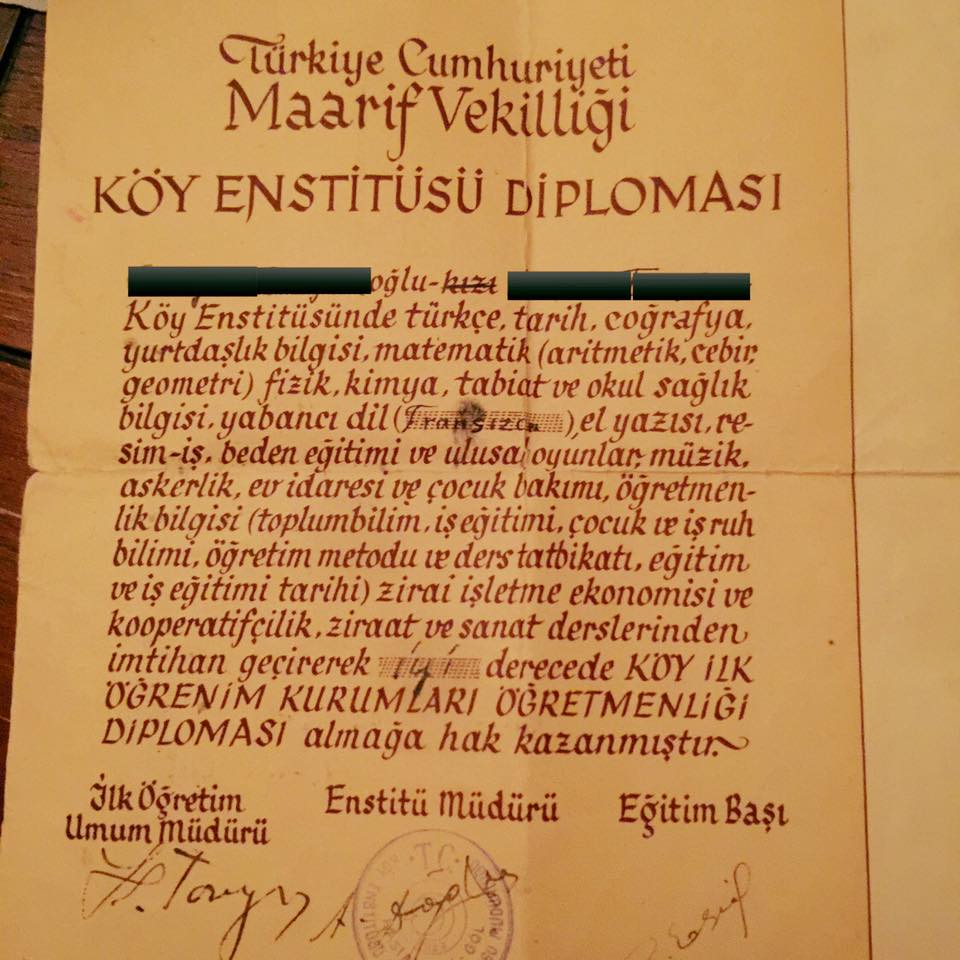 Türkiye Cumhuriyeti
Maarif Vekilliği
KÖY ENSTİTÜSÜ DİPLOMASI
oğlu-kızı
Köy Enstitüsünde türkçe, tarih, coğrafya,
yurtdaşlık bilgisi, matematik (aritmetik, cebir,
geometri) fizik, kimya, tabiat ve okul sağlık
bilgisi, yabancı dil (Fransızca), el yazısı, re-
sim-iş, beden eğitimi ve ulusal oyunlar, müzik,
askerlik, ev idaresi ve çocuk bakımı, öğretmen-
lik bilgisi (toplumbilim, iş eğitimi, çocuk ve iş ruh
bilimi, öğretim metodu ve ders tatbikatı, eğitim
ve iş eğitimi tarihi) zirai işletme ekonomisi ve
kooperatifçilik, ziraat ve sanat derslerinden
imtihan geçirerek iyi derecede KÖY İLK
ÖĞRENİM KURUMLARI ÖĞRETMENLİĞİ
DİPLOMASI almağa hak kazanmıştır.
İlk Öğretim
Umum Müdürü
Enstitü Müdürü
Eğitim Başı